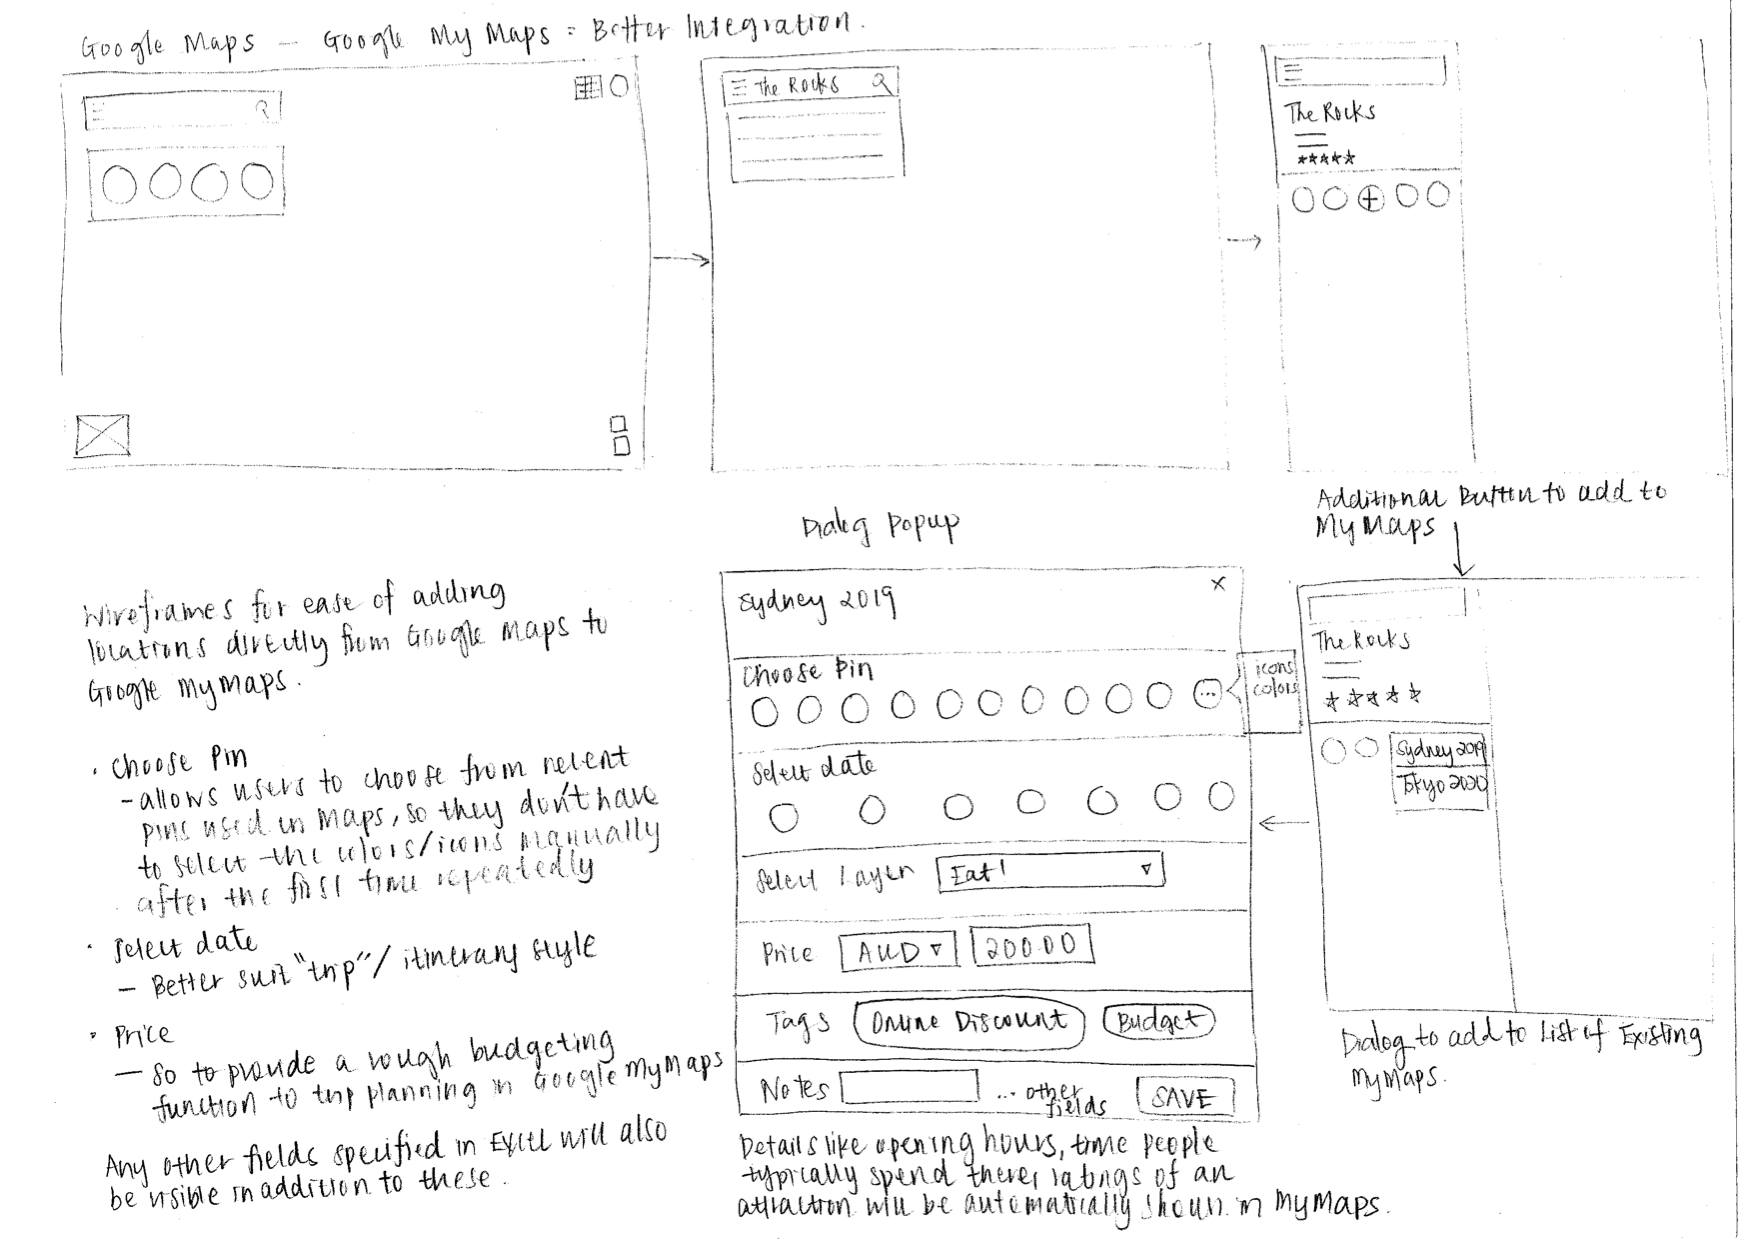 Google Maps – Google My Maps = Better Integration.
The Rocks
The Rocks
Additional Button to add to
My Maps
Dialog Popup
Wireframes for ease of adding
locations directly from Google Maps to
Google MyMaps.
• Choose Pin
- allows users to choose from recent
pins used in Maps, so they don't have
to select the colors/icons manually
after the first time repeatedly
• Select date
– Better suit "trip"/ itinerary style
• Price
– So to provide a rough budgeting
function to trip planning in Google MyMaps
Any other fields specified in Excel will also
be visible in addition to these.
Sydney 2019 ×
Choose Pin
...
icons
colors
Select date
Select Layer Eat!
Price AUD 200.00
Tags Online Discount Budget
Notes ... other
fields SAVE
Details like opening hours, time people
typically spend there, ratings of an
attraction will be automatically shown in MyMaps.
The Rocks
Sydney 2019
Tokyo 2020
Dialog to add to List of Existing
MyMaps.